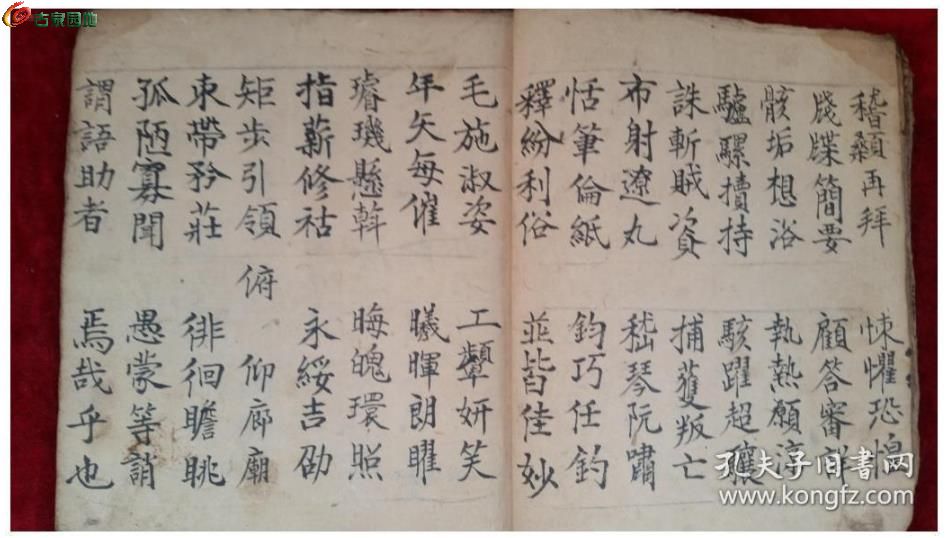 古泉园地
稽顙再拜 悚懼恐惶
牋牒簡要 顧答審詳
骸垢想浴 執熱願涼
驢騾犢持 駭躍超驤
誅斬賊資 捕獲叛亡
布射遼丸 嵇琴阮嘯
恬筆倫紙 鈞巧任釣
釋紛利俗 並皆佳妙
毛施淑姿 工顰妍笑
年矢每催 曦暉朗曜
璿璣懸斡 晦魄環照
指薪修祜 永綏吉劭
矩步引領 俯仰廊廟
束帶矜莊 徘徊瞻眺
孤陋寡聞 愚蒙等誚
謂語助者 焉哉乎也
孔夫子旧书网
www.kongfz.com